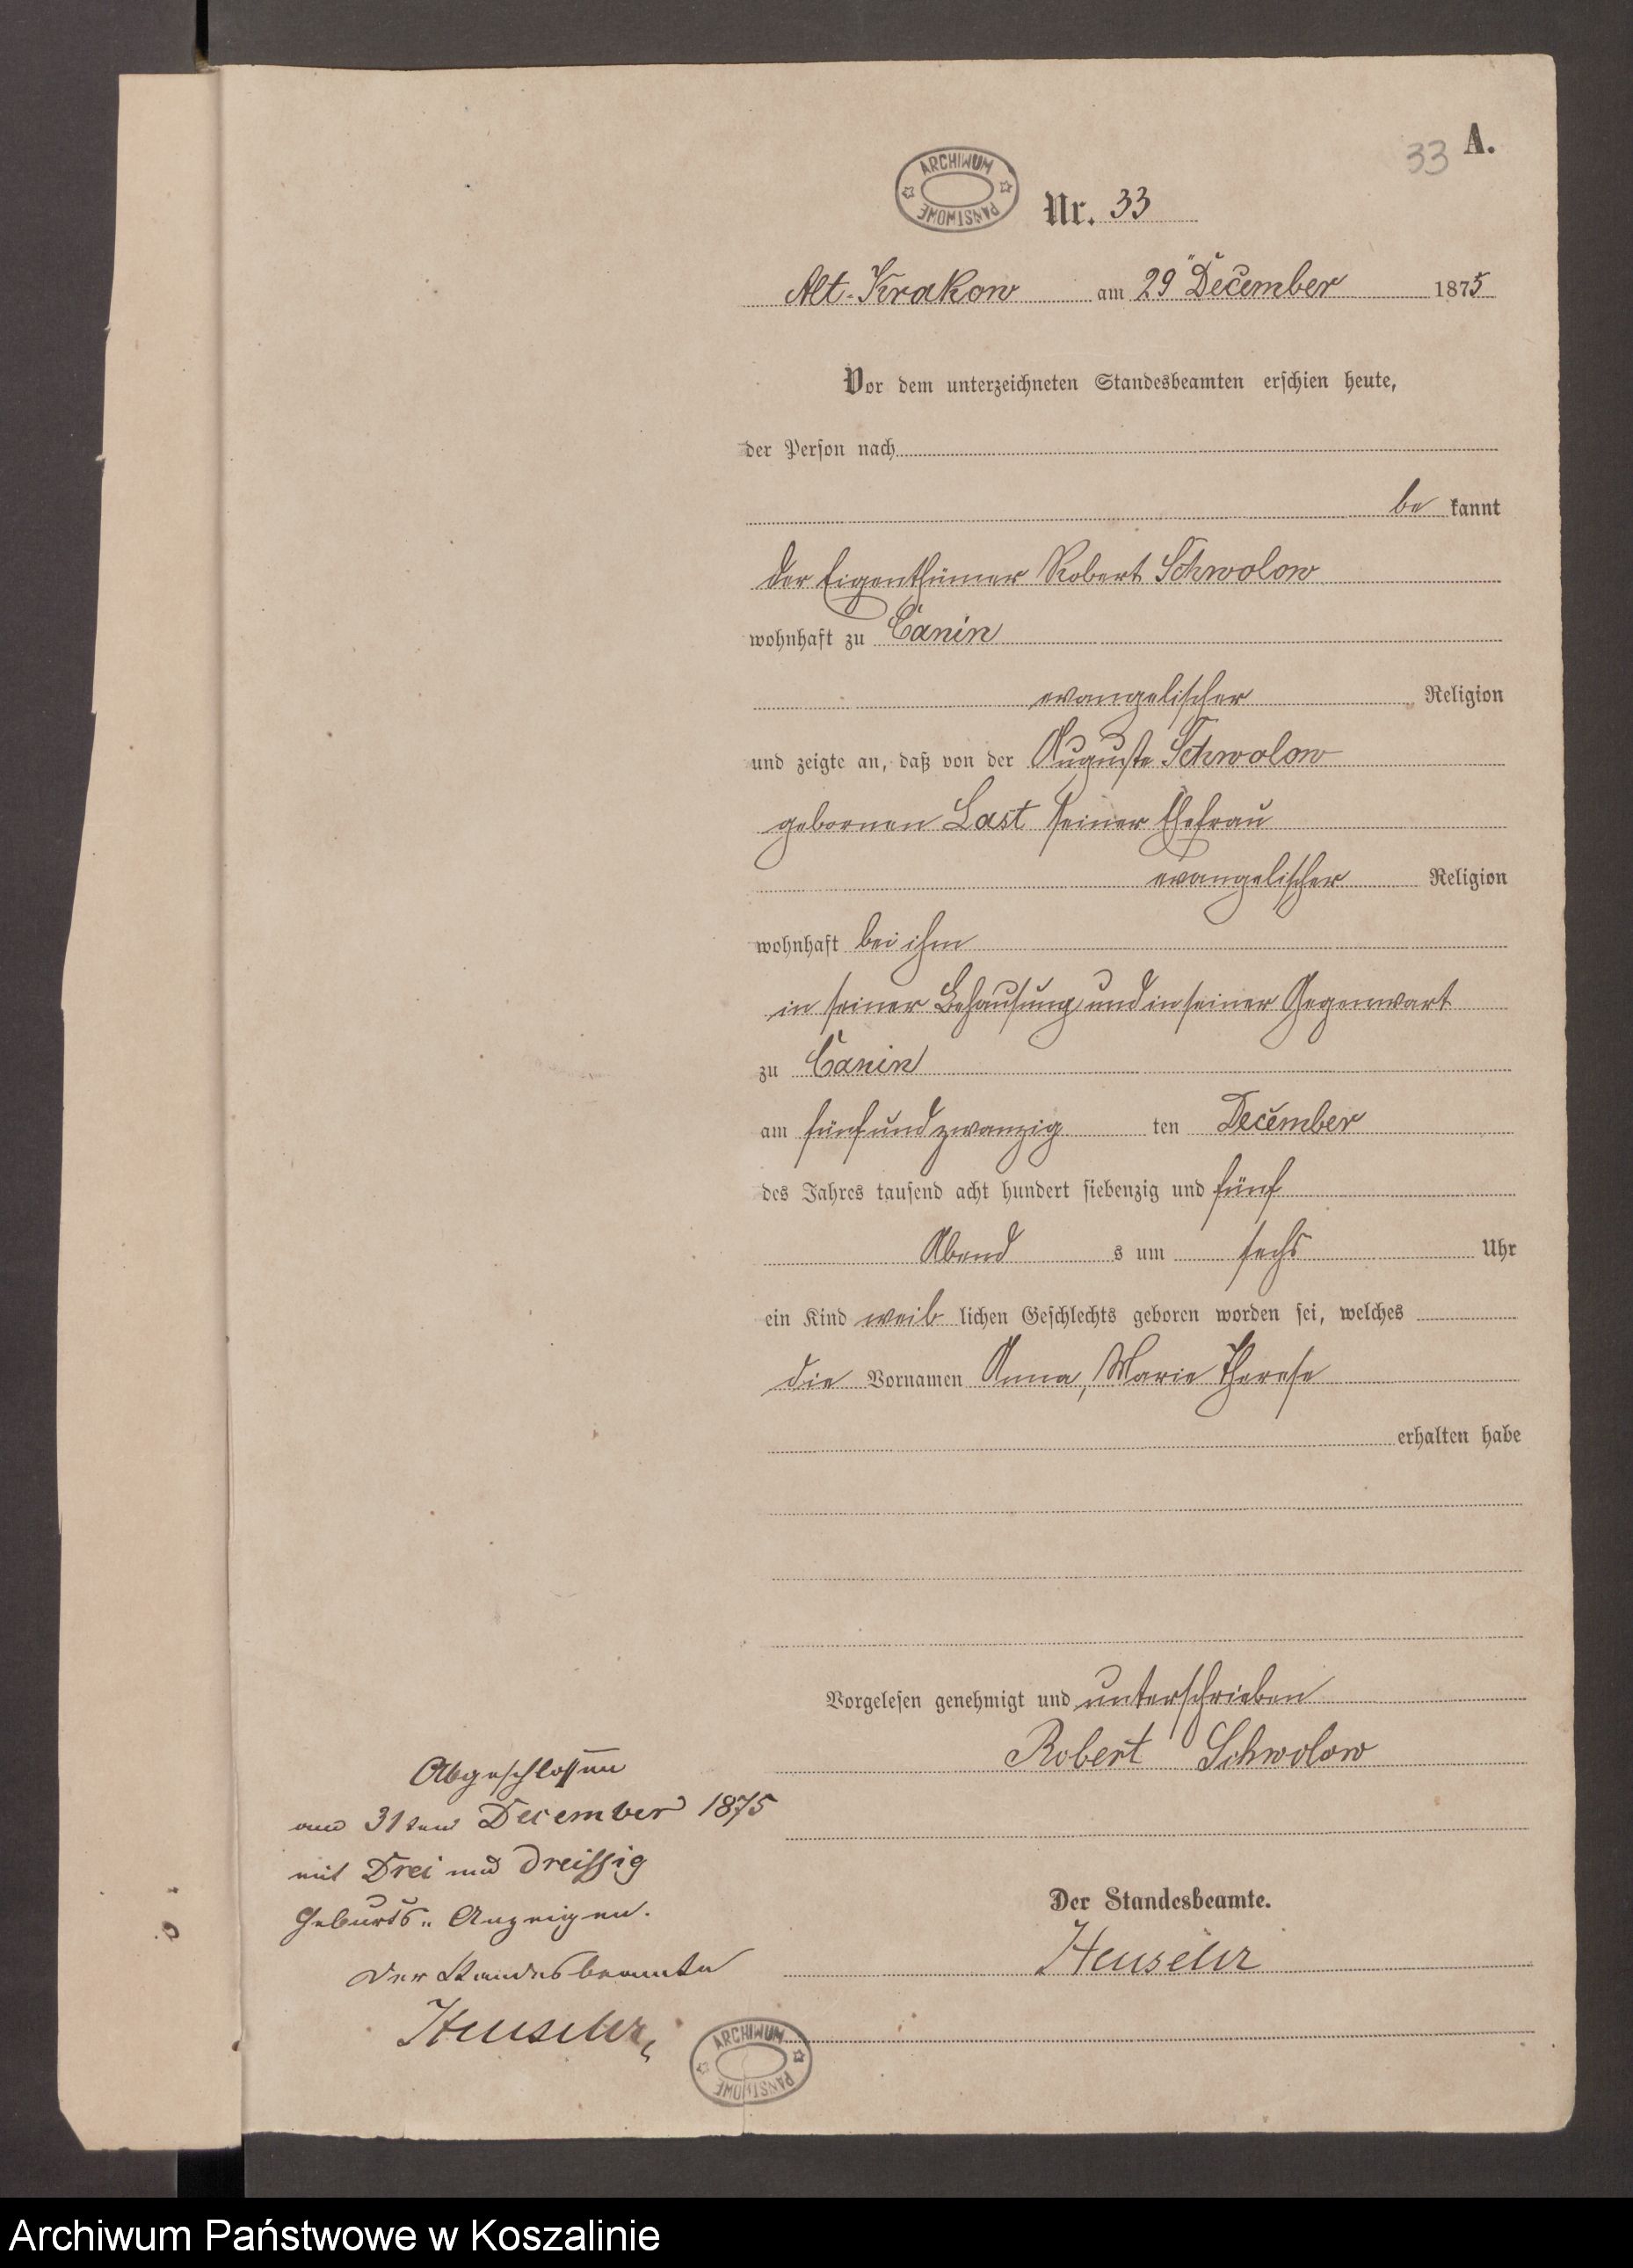 33 A.
ARCHIWUM PAŃSTWOWE
Nr. 33
Alt-Krakow am 29 December 1875
Vor dem unterzeichneten Standesbeamten erschien heute,
der Person nach
be kannt
der Eigenthümer Robert Schwolow
wohnhaft zu Canin
evangelischer Religion
und zeigte an, daß von der Auguste Schwolow
gebornen Last seiner Ehefrau
evangelischer Religion
wohnhaft bei ihm
in seiner Behausung und in seiner Gegenwart
zu Canin
am fünfundzwanzig ten December
des Jahres tausend acht hundert siebenzig und fünf
Abend s um sechs Uhr
ein Kind weib lichen Geschlechts geboren worden sei, welches
die Vornamen Anna, Marie Therese
erhalten habe
Vorgelesen genehmigt und unterschrieben
Robert Schwolow
Abgeschlossen
am 31ten December 1875
mit Drei und dreissig
Geburts-Anzeigen.
Der Standesbeamte
Der Standesbeamte.
ARCHIWUM PAŃSTWOWE
Archiwum Państwowe w Koszalinie